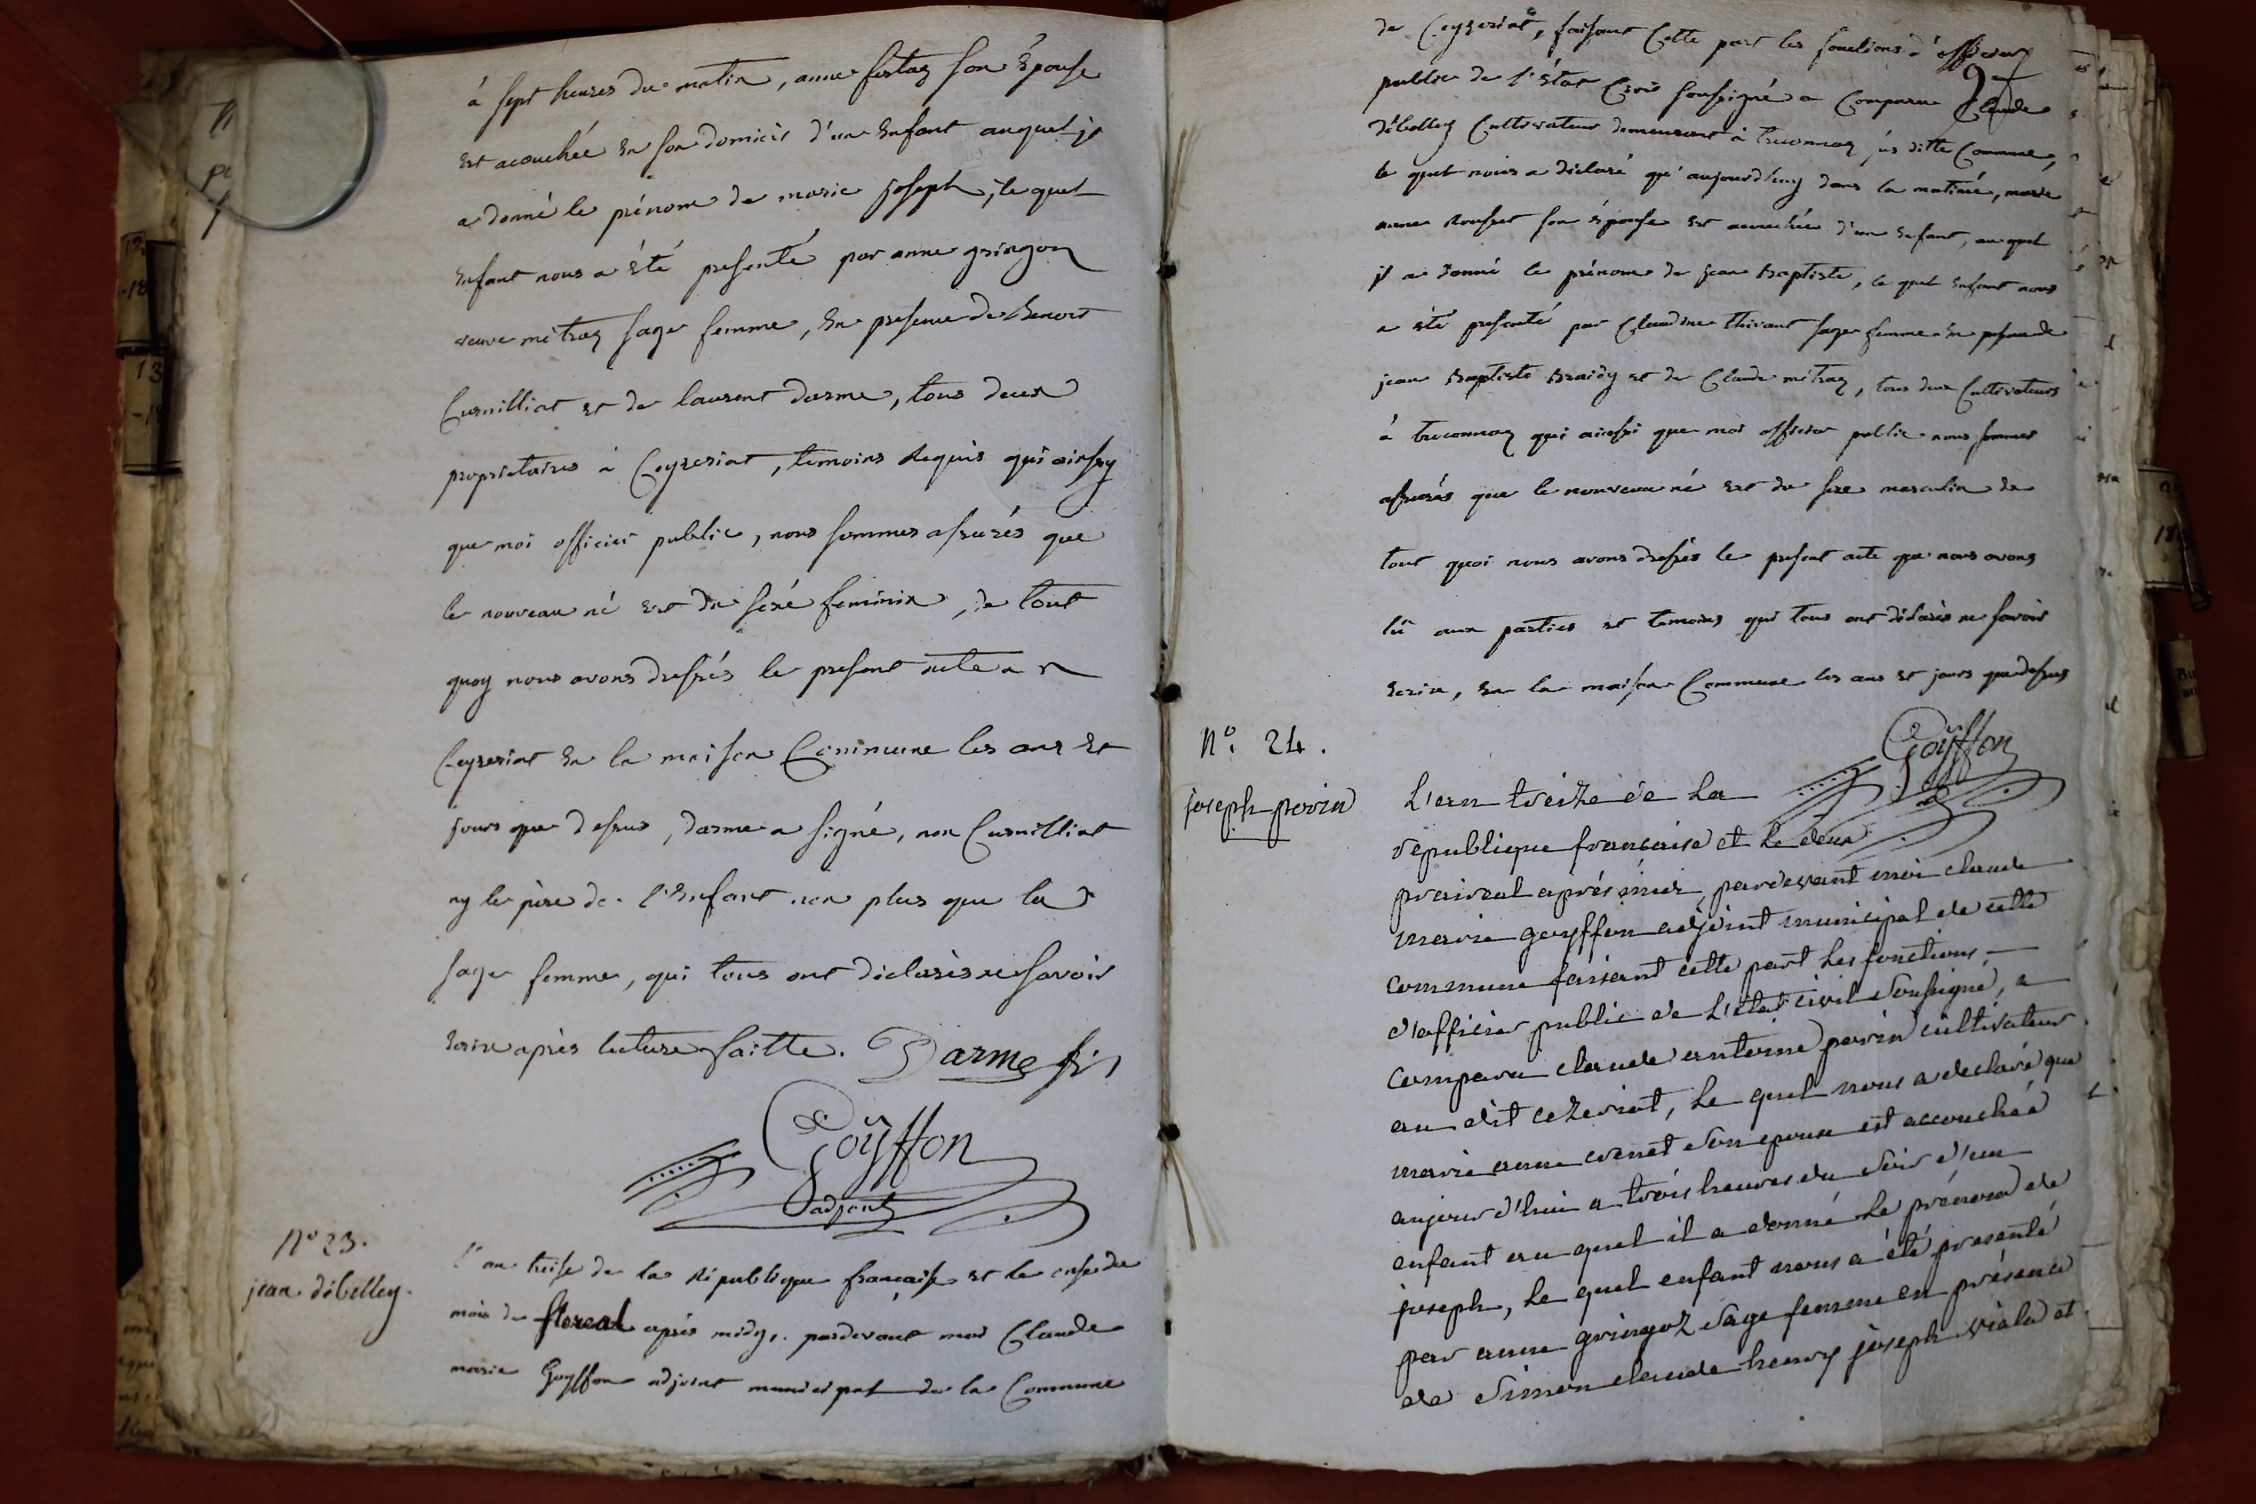 à sept heures du matin, anne fertaz son Épouse
Est acouchée En son domicile d'un Enfant auquel jl
a donné le prénom de marie joseph, le quel
Enfant nous a Été presenté par anne gringoz
veuve mitraz sage femme, En presence de Benoit
Curnilliat et de laurent darme, tous deux
proprietaires à Ceyzeriat, temoins Requis qui ainsy
que moi officier public, nous sommes assurés que
le nouveau né Est du sexe feminin, de tout
quoy nous avons dressés le present acte a
Ceyzeriat En la maison Commune les ans Et
jours que dessus, darme a signé, non Curnilliat
ny le père de l'Enfant non plus que la
sage femme, qui tous ont déclarés ne savoir
Ecrire après lecture faitte. Darme fils
Goÿffon
adjoint
N° 23.
jean débelley.
l'an treise de la République française et le onse du
mois de floreal après midy, pardevant moi Claude
marie Goyffon adjoint municipal de la Commune
de Ceyzeriat, faisant Cette part les fonctions d'officier
public de l'état Civil soussigné a Comparu Claude
débelley Cultivateur demeurant à treconnaz, sus ditte Commune,
le quel nous a déclaré qu'aujourd'huy dans la matinée, marie
anne Rousset son épouse est acouchée d'un Enfant, au quel
jl a donné le prénom de jean Baptiste, le quel Enfant nous
a été presenté par Claudine thivant sage femme En presence de
jean Baptiste Braidy et de Claude mitraz, tous deux Cultivateurs
à treconnaz qui ainssi que moi officier public nous sommes
assurés que le nouveau né est du sexe masculin de
tout quoi nous avons dressés le present acte que nous avons
lû aux parties et temoins qui tous ont déclarés ne savoir
Ecrire, En la maison Commune les ans et jours que dessus
Goÿffon
N°. 24.
joseph perin
L'an treize de La
république francaise et le deux
prairial après midi, pardevant moi claude
marie goyffon adjoint municipal de cette
commune faisant cette part Les fonctions
d'officier public de L'état civil soussigné, a
comparu claude antoine perin cultivateur
au dit cezeriat, Le quel nous a declaré que
marie anne evenet son epouse est accouchée
aujourd'hui a trois heures du soir d'un
enfant au quel il a donné Le prénom de
joseph, Le quel enfant nous a été presenté
par anne gringoz sage femme en présence
de simon claude henry joseph viala et